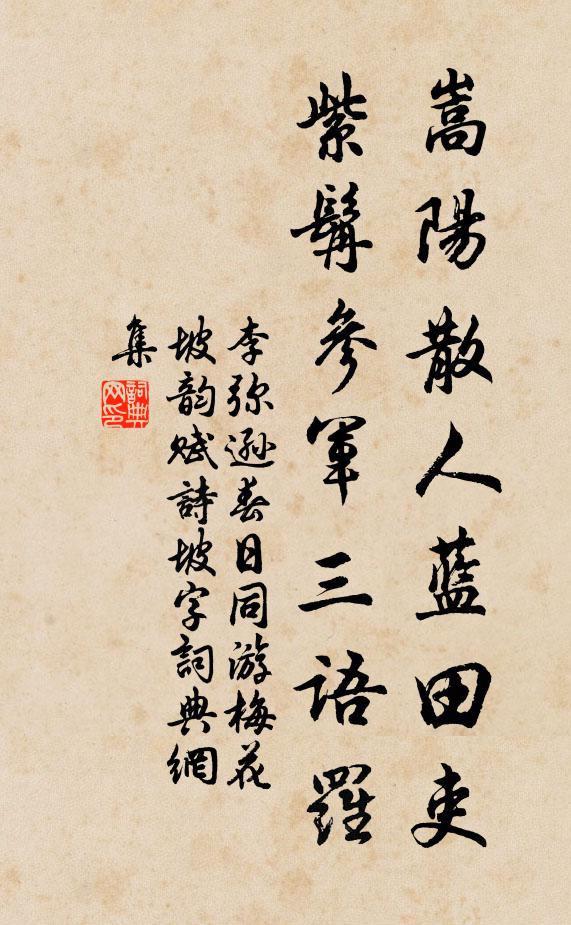 嵩陽散人藍田吏
紫髯參軍三語羅
李弥遜春日同游梅花
坡韵賦詩坡字詞典網
集
詞典
网印